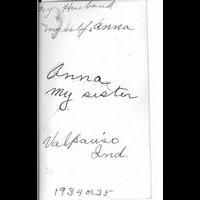 my Husband
&
myself, Anna
Anna
my sister
Valpariso
Ind.
1934 or 35